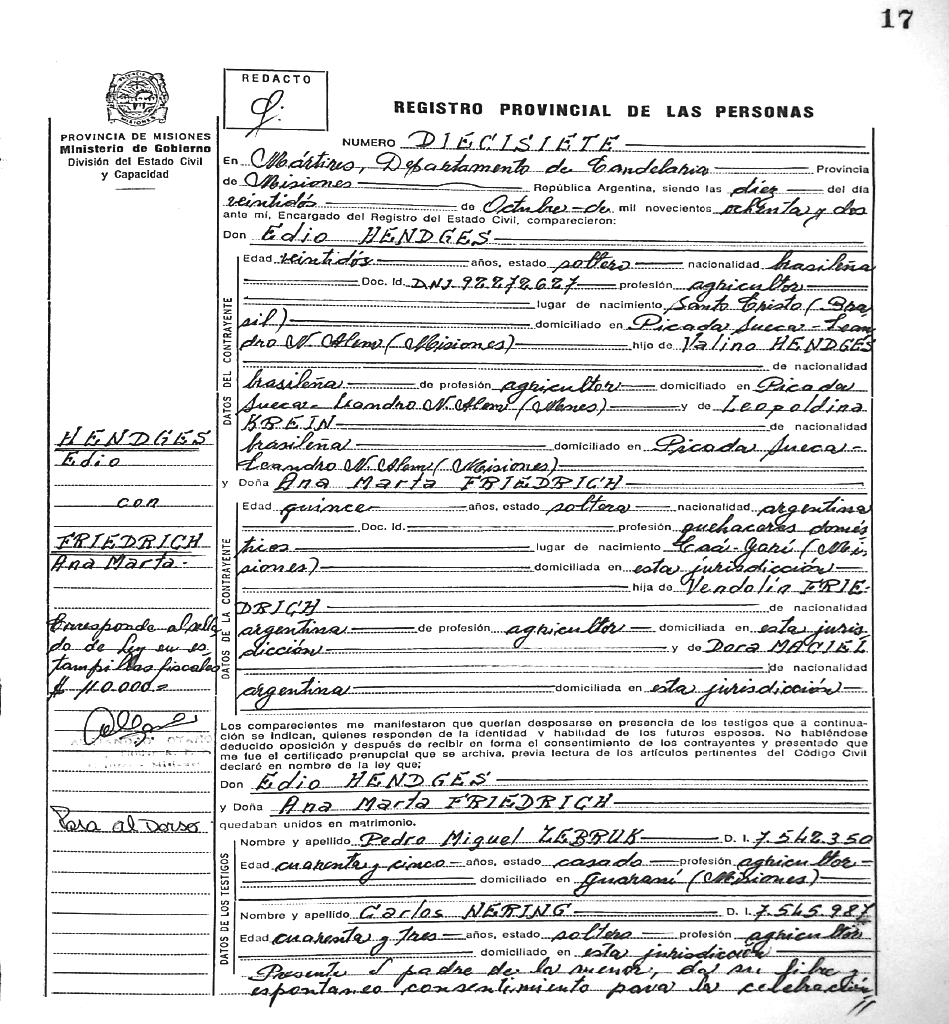 17
REDACTO
REGISTRO PROVINCIAL DE LAS PERSONAS
PROVINCIA DE MISIONES
Ministerio de Gobierno
División del Estado Civil
y Capacidad
NUMERO DIECISIETE
En Mártires, Departamento de Candelaria Provincia
de Misiones República Argentina, siendo las diez del día
veintidos de Octubre de mil novecientos ochenta y dos
ante mí, Encargado del Registro del Estado Civil, comparecieron:
Don Edio HENDGES
DATOS DEL CONTRAYENTE
Edad veintidós años, estado soltero nacionalidad brasileña
Doc. Id. DNI 92272627 profesión agricultor
lugar de nacimiento Santo Cristo (Bra
sil) domiciliado en Picada Sueca - Lean
dro N. Alem (Misiones) hijo de Valino HENDGES
de nacionalidad
brasileña de profesión agricultor domiciliado en Picada
Sueca - Leandro N. Alem (Mnes) y de Leopoldina
KREIN de nacionalidad
brasileña domiciliado en Picada Sueca -
Leandro N. Alem (Misiones)
y Doña Ana Marta FRIEDRICH
HENDGES
Edio
con
FRIEDRICH
Ana Marta.-
Corresponde al sella
do de Ley en es
tampillas fiscales
$ 110.000=
Pasa al Dorso
DATOS DE LA CONTRAYENTE
Edad quince años, estado soltera nacionalidad argentina
Doc. Id. profesión quehaceres domés
ticos lugar de nacimiento Caá-Yarí (Mi
siones) domiciliada en esta jurisdicción
hija de Vendolín FRIE-
DRICH de nacionalidad
argentina de profesión agricultor domiciliada en esta juris
dicción y de Dora MACIEL
de nacionalidad
argentina domiciliada en esta jurisdicción
Los comparecientes me manifestaron que querían desposarse en presencia de los testigos que a continua-
ción se indican, quienes responden de la identidad y habilidad de los futuros esposos. No habiéndose
deducido oposición y después de recibir en forma el consentimiento de los contrayentes y presentado que
me fue el certificado prenupcial que se archiva, previa lectura de los artículos pertinentes del Código Civil
declaró en nombre de la ley que;
Don Edio HENDGES
y Doña Ana Marta FRIEDRICH
quedaban unidos en matrimonio.
DATOS DE LOS TESTIGOS
Nombre y apellido Pedro Miguel ZEBRUK D. I. 7.542.350
Edad cuarenta y cinco años, estado casado profesión agricultor
domiciliado en Guaraní (Misiones)
Nombre y apellido Carlos NERING D. I. 7.545.987
Edad cuarenta y tres años, estado soltero profesión agricultor
domiciliado en esta jurisdicción
Presente el padre de la menor, da su libre y
espontaneo consentimiento para la celebración
//